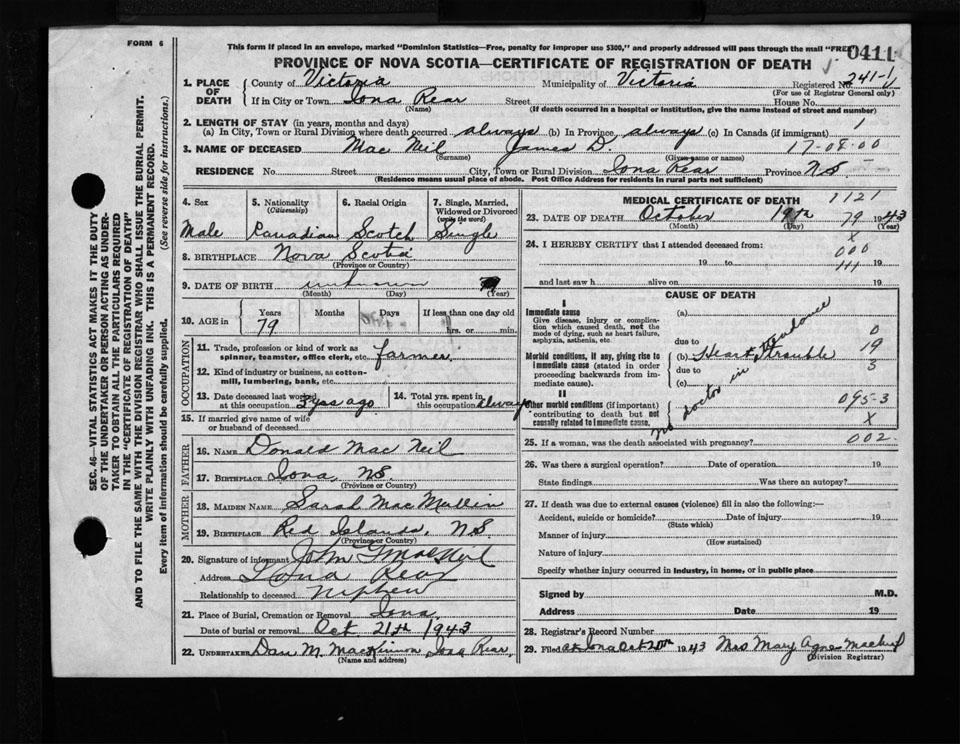 FORM 6
This form if placed in an envelope, marked "Dominion Statistics—Free, penalty for improper use $300," and properly addressed will pass through the mail "FREE
0411
PROVINCE OF NOVA SCOTIA—CERTIFICATE OF REGISTRATION OF DEATH
SEC. 46—VITAL STATISTICS ACT MAKES IT THE DUTY
OF THE UNDERTAKER OR PERSON ACTING AS UNDER-
TAKER TO OBTAIN ALL THE PARTICULARS REQUIRED
IN THE "CERTIFICATE OF REGISTRATION OF DEATH"
AND TO FILE THE SAME WITH THE DIVISION REGISTRAR WHO SHALL ISSUE THE BURIAL PERMIT.
WRITE PLAINLY WITH UNFADING INK. THIS IS A PERMANENT RECORD.
Every item of information should be carefully supplied. (See reverse side for instructions.)
1. PLACE OF DEATH County of Victoria Municipality of Victoria Registered No. 241-1
(For use of Registrar General only)
If in City or Town Iona Rear Street House No.
(Name) (If death occurred in a hospital or institution, give the name instead of street and number)
2. LENGTH OF STAY (in years, months and days)
(a) In City, Town or Rural Division where death occurred always (b) In Province always (c) In Canada (if immigrant) 1
3. NAME OF DECEASED Mac Neil James D. 17-08-00
(Surname) (Given name or names)
RESIDENCE No. Street City, Town or Rural Division Iona Rear Province N.S.
(Residence means usual place of abode. Post Office Address for residents in rural parts not sufficient)
4. Sex 5. Nationality (Citizenship) 6. Racial Origin 7. Single, Married, Widowed or Divorced (write the word)
Male Canadian Scotch Single
8. BIRTHPLACE Nova Scotia
(Province or Country)
9. DATE OF BIRTH unknown
(Month) (Day) (Year)
10. AGE in Years Months Days If less than one day old
79 hrs. or min.
OCCUPATION
11. Trade, profession or kind of work as
spinner, teamster, office clerk, etc. farmer
12. Kind of industry or business, as cotton-
mill, lumbering, bank, etc.
13. Date deceased last worked at this occupation 5 yrs ago 14. Total yrs. spent in this occupation always
15. If married give name of wife
or husband of deceased
FATHER
16. NAME Donald Mac Neil
17. BIRTHPLACE Iona, N.S.
(Province or Country)
MOTHER
18. MAIDEN NAME Sarah MacMullin
19. BIRTHPLACE Red Islands, N.S.
(Province or Country)
20. Signature of informant John G MacNeil
Address Iona Rear
Relationship to deceased nephew
21. Place of Burial, Cremation or Removal Iona
Date of burial or removal Oct 21st 1943
22. UNDERTAKER Dan M. MacKinnon Iona Rear
(Name and address)
MEDICAL CERTIFICATE OF DEATH 1121
23. DATE OF DEATH October 19th 79 1943
(Month) (Day) (Year)
24. I HEREBY CERTIFY that I attended deceased from: X
000
19 to 111 19
and last saw h alive on 19
CAUSE OF DEATH
I
Immediate cause (a)
Give disease, injury or complica-
tion which caused death, not the
mode of dying, such as heart failure,
asphyxia, asthenia, etc.
due to 0
Morbid conditions, if any, giving rise to
immediate cause (stated in order
proceeding backwards from im-
mediate cause).
(b) Heart trouble 19
due to 5
(c)
no doctor in
II
Other morbid conditions (if important)
contributing to death but not
causally related to immediate cause.
095-3
X
25. If a woman, was the death associated with pregnancy? 002
26. Was there a surgical operation? Date of operation 19
State findings Was there an autopsy?
27. If death was due to external causes (violence) fill in also the following:—
Accident, suicide or homicide? Date of injury 19
(State which)
Manner of injury
(How sustained)
Nature of injury
Specify whether injury occurred in industry, in home, or in public place
Signed by M.D.
Address Date 19
28. Registrar's Record Number
29. Filed at Iona Oct 20th 1943 Mrs Mary Agnes MacNeil
(Division Registrar)